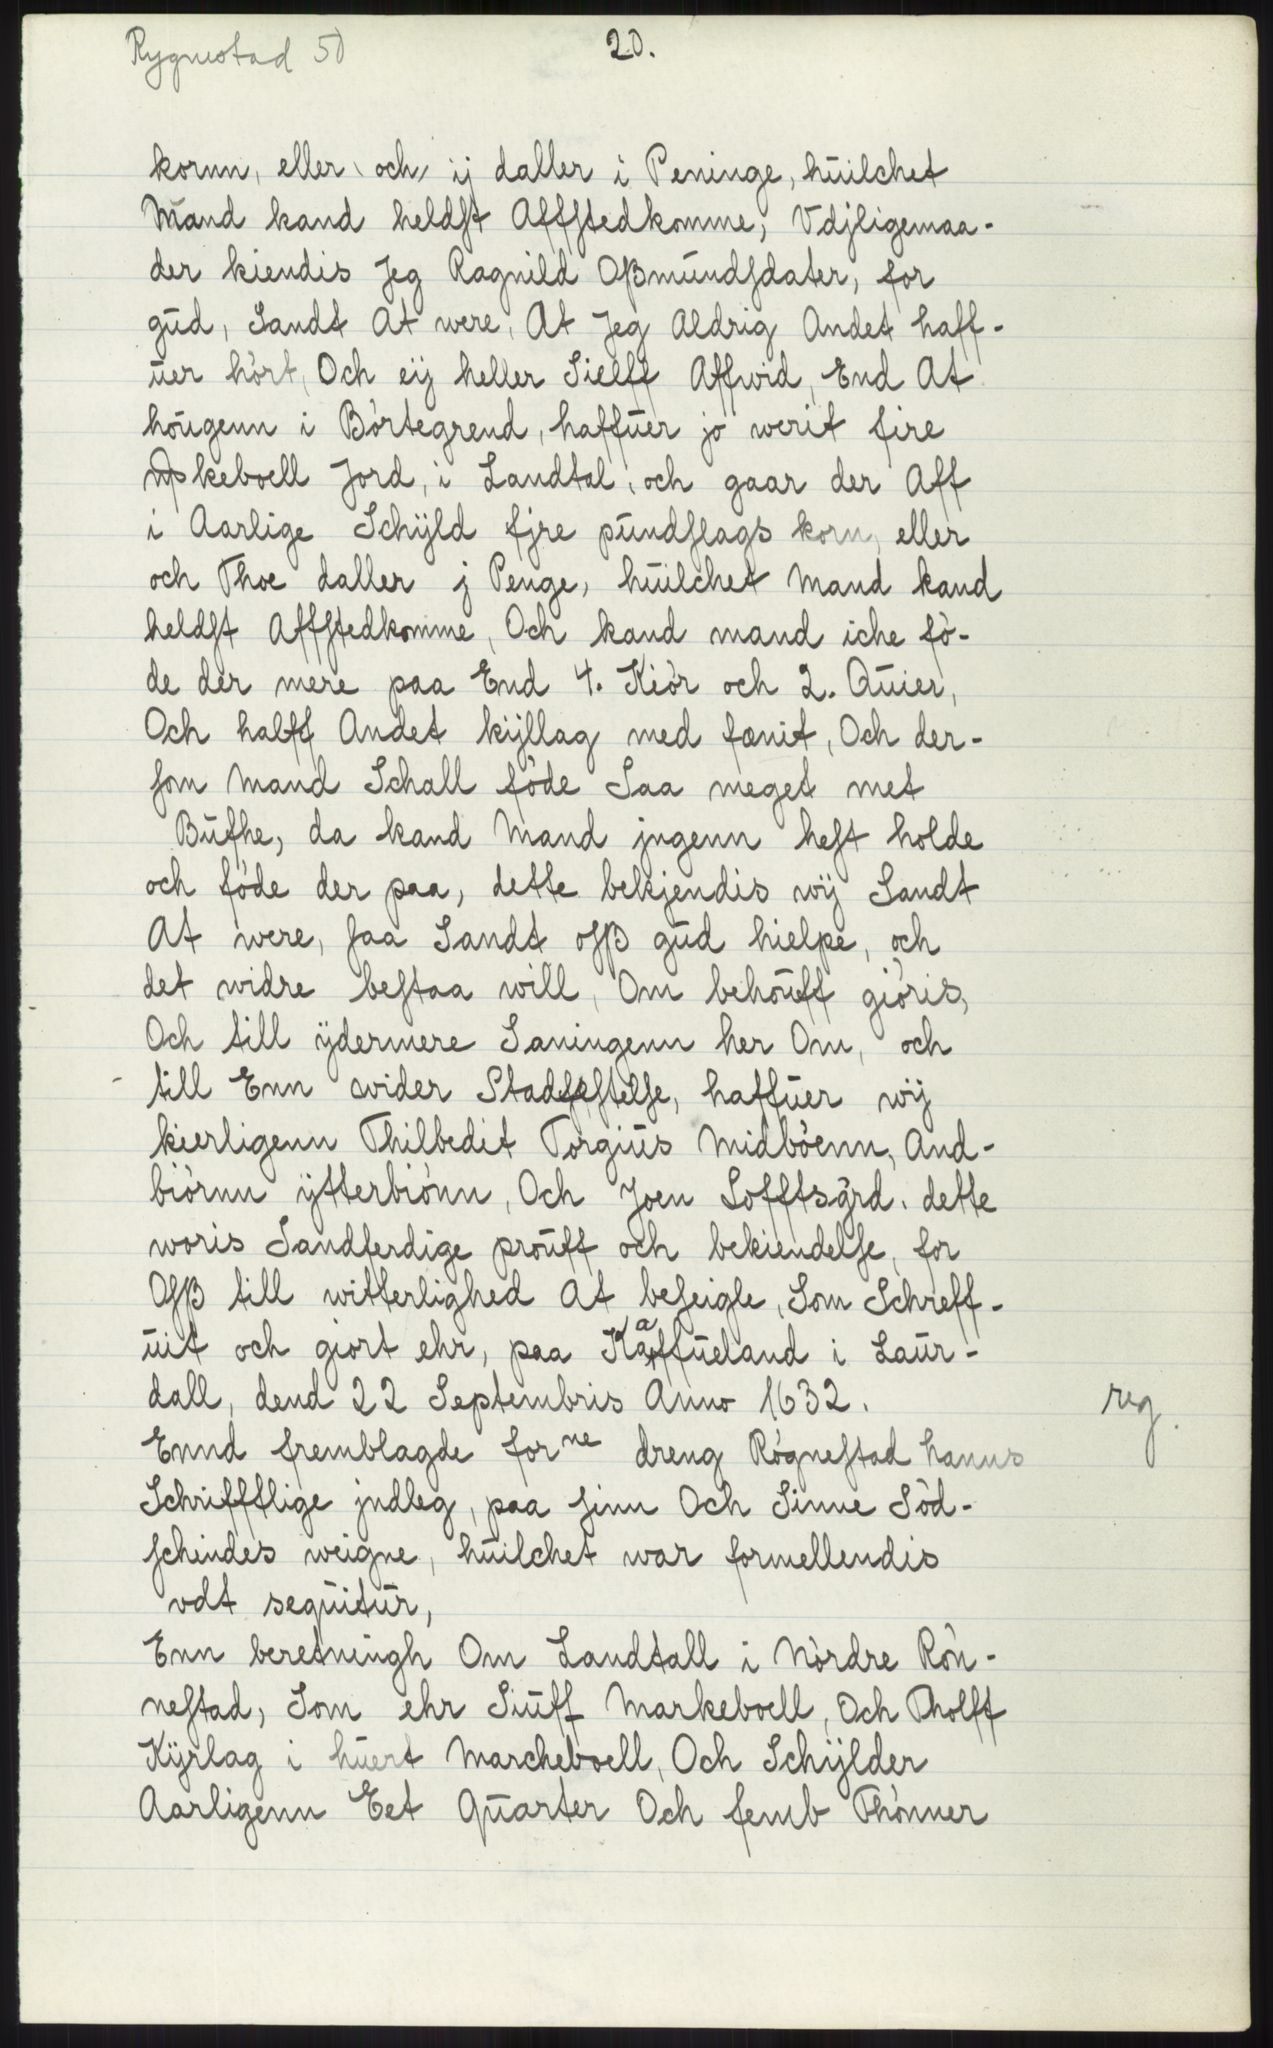 Rygnestad 50
20.
kornn, eller och ij daller i Peninge, huilchet
Mand kand heldst Affstedkomme, Vdjligemaa-
der kiendis Jeg Ragnild Oßmundsdater, for
gud, Sandt At were, At Jeg Aldrig Andet haff-
uer hört, Och eij heller Sielff Affwid, End At
hougenn i Börtegrend, haffuer jo werit fire
keboell Jord, i Landtal, och gaar der Aff
i Aarlige Schÿld fjre pundslags korn, eller
och Thoe daller j Penge, huilchet Mand kand
heldst Affstedkomme, Och kand mand iche fö-
de der mere paa End 4. Kiör och 2. Quier,
Och halff Andet kÿllag med fænit, Och der-
som Mand Schall föde Saa meget met
Bufhe, da kand Mand jngenn hest holde
och föde der paa, dette bekjendis wÿ Sandt
At were, saa Sandt osß gud hielpe, och
det widre bestaa will, Om behouff giöris,
Och till ÿdermere Saningenn her Om, och
till Enn wider Stadfestelse, haffuer wÿ
kierligenn Thilbedit Torgius Midböenn, And-
biörnn ÿtterbiönn, Och Joen Lofftsgrd. dette
woris Sandferdige prouff och bekiendelse, for
Osß till witterlighed At beseigle, Som Schreff-
uit och giort ehr, paa Kaffueland i Laur-
dall, dend 22 Septembris Anno 1632.
reg.
Ennd fremblagde forne dreng Rögnestad hanns
Schrifftlige jndleg, paa sinn Och Sinne Söd-
schindes weigne, huilchet war formellendis
vdt sequitur,
Enn beretningh Om Landtall i Nördre Rön-
nestad, Som ehr Siuff Markeboell, Och Tholff
Kÿrlag i huert Marcheboell, Och Schÿlder
Aarligenn Eet Quarter Och femb Thönner